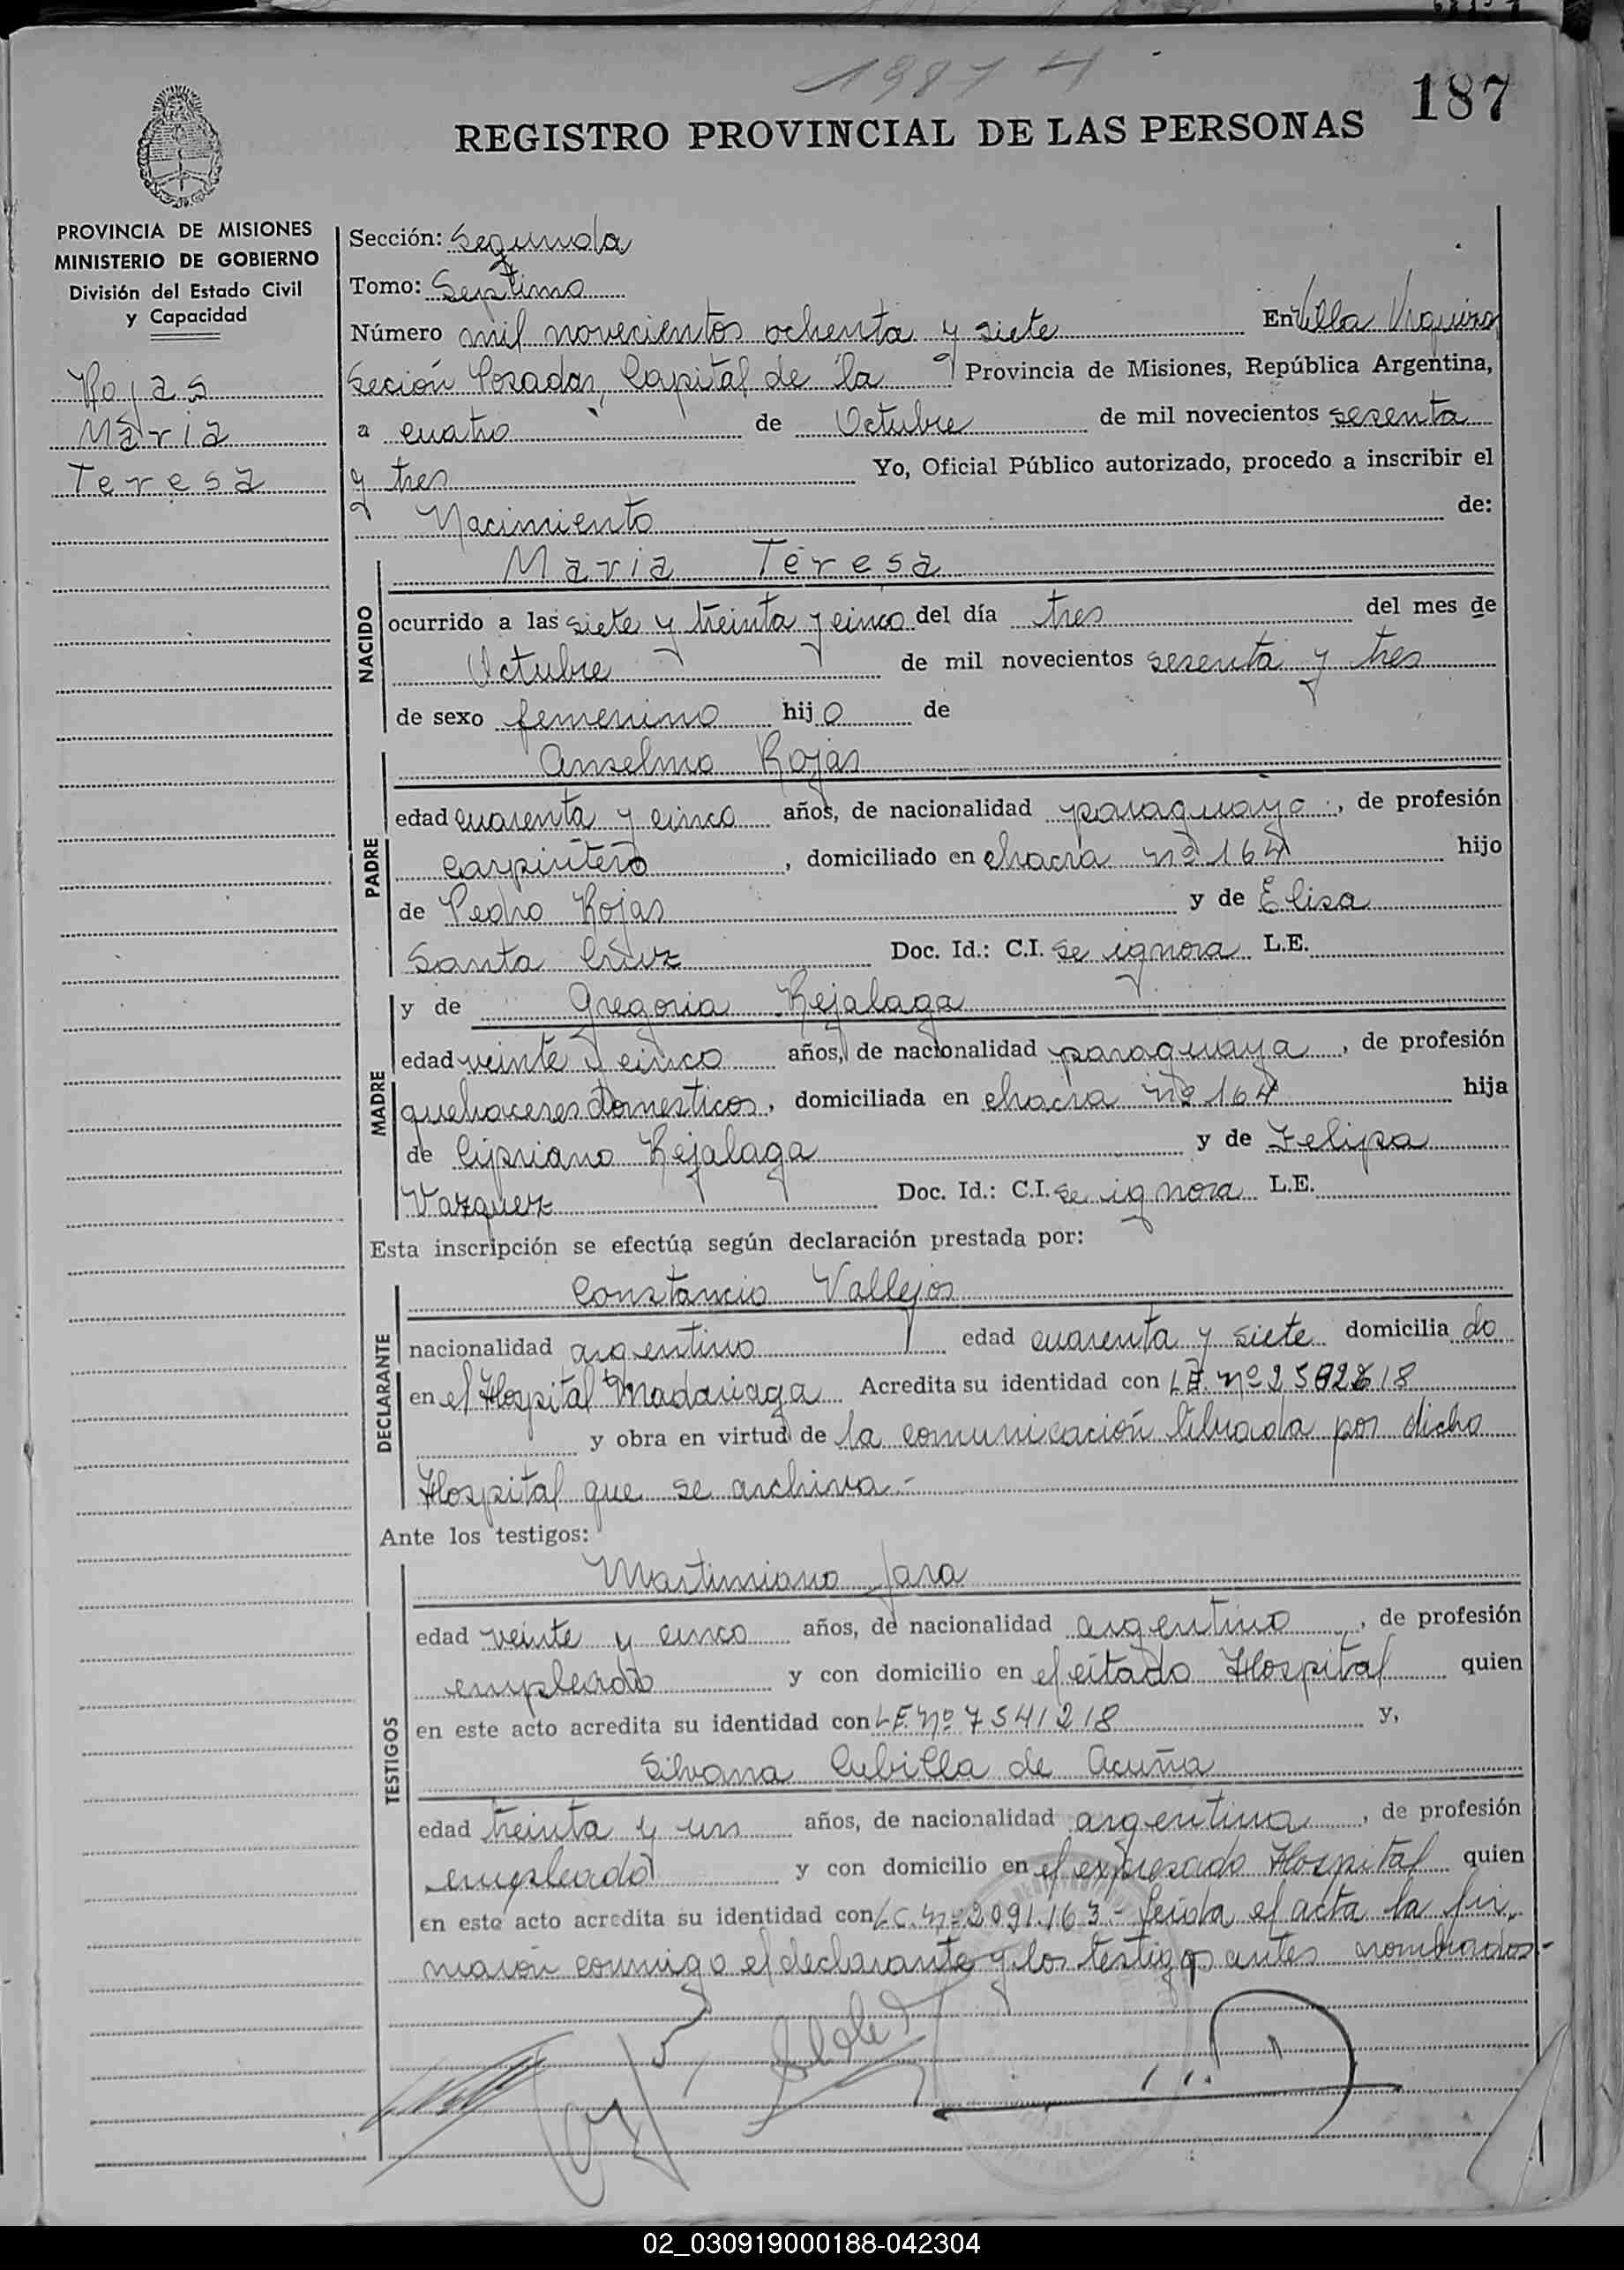 1987
187
REGISTRO PROVINCIAL DE LAS PERSONAS
PROVINCIA DE MISIONES
MINISTERIO DE GOBIERNO
División del Estado Civil
y Capacidad
Rojas
Maria
Teresa
Sección: Segunda
Tomo: Septimo
Número mil novecientos ochenta y siete En Villa Urquiza
Seción Posadas, Capital de la Provincia de Misiones, República Argentina,
a cuatro de Octubre de mil novecientos sesenta
y tres Yo, Oficial Público autorizado, procedo a inscribir el
Nacimiento de:
NACIDO
Maria Teresa
ocurrido a las siete y treinta y cinco del día tres del mes de
Octubre de mil novecientos sesenta y tres
de sexo femenino hijo de
PADRE
Anselmo Rojas
edad cuarenta y cinco años, de nacionalidad paraguayo, de profesión
carpintero, domiciliado en chacra nº 164 hijo
de Pedro Rojas y de Elisa
Santa Cruz Doc. Id.: C.I. se ignora L.E.
MADRE
y de Gregoria Rejalaga
edad veinte y cinco años, de nacionalidad paraguaya, de profesión
quehaceres domesticos, domiciliada en chacra nº 164 hija
de Cipriano Rejalaga y de Felipa
Vazquez Doc. Id.: C.I. se ignora L.E.
Esta inscripción se efectúa según declaración prestada por:
DECLARANTE
Constancio Vallejos
nacionalidad argentino edad cuarenta y siete domiciliado
en el Hospital Madariaga Acredita su identidad con L.E. nº
y obra en virtud de la comunicación librada por dicho
Hospital que se archiva.-
Ante los testigos:
TESTIGOS
Martiniano Jara
edad veinte y cinco años, de nacionalidad argentino, de profesión
empleado y con domicilio en el citado Hospital quien
en este acto acredita su identidad con L.E. nº 7541218 y,
Silvana Cubilla de Acuña
edad treinta y un años, de nacionalidad argentina, de profesión
empleada y con domicilio en el expresado Hospital quien
en este acto acredita su identidad con L.C. nº 2.091.163.- Leida el acta la fir-
maron conmigo el declarante y los testigos antes nombrados.-
02_030919000188-042304